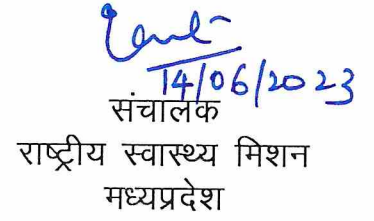 14/06/2023
संचालक
राष्ट्रीय स्वास्थ्य मिशन
मध्यप्रदेश